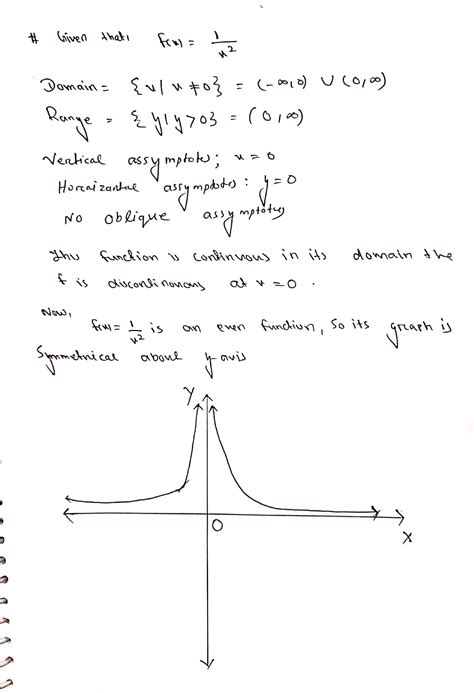 # Given that, f(x) = 1/x²
Domain = {x | x ≠ 0} = (-∞, 0) ∪ (0, ∞)
Range = {y | y > 0} = (0, ∞)
Vertical assymptote; x = 0
Horeaizantal assymptote: y = 0
No oblique assymptotes
The function is continuous in its domain the
f is discontinouous at x = 0.
Now,
f(x) = 1/x² is an even function, so its greaph is
Symmetrical about y-axis
Y
O
X